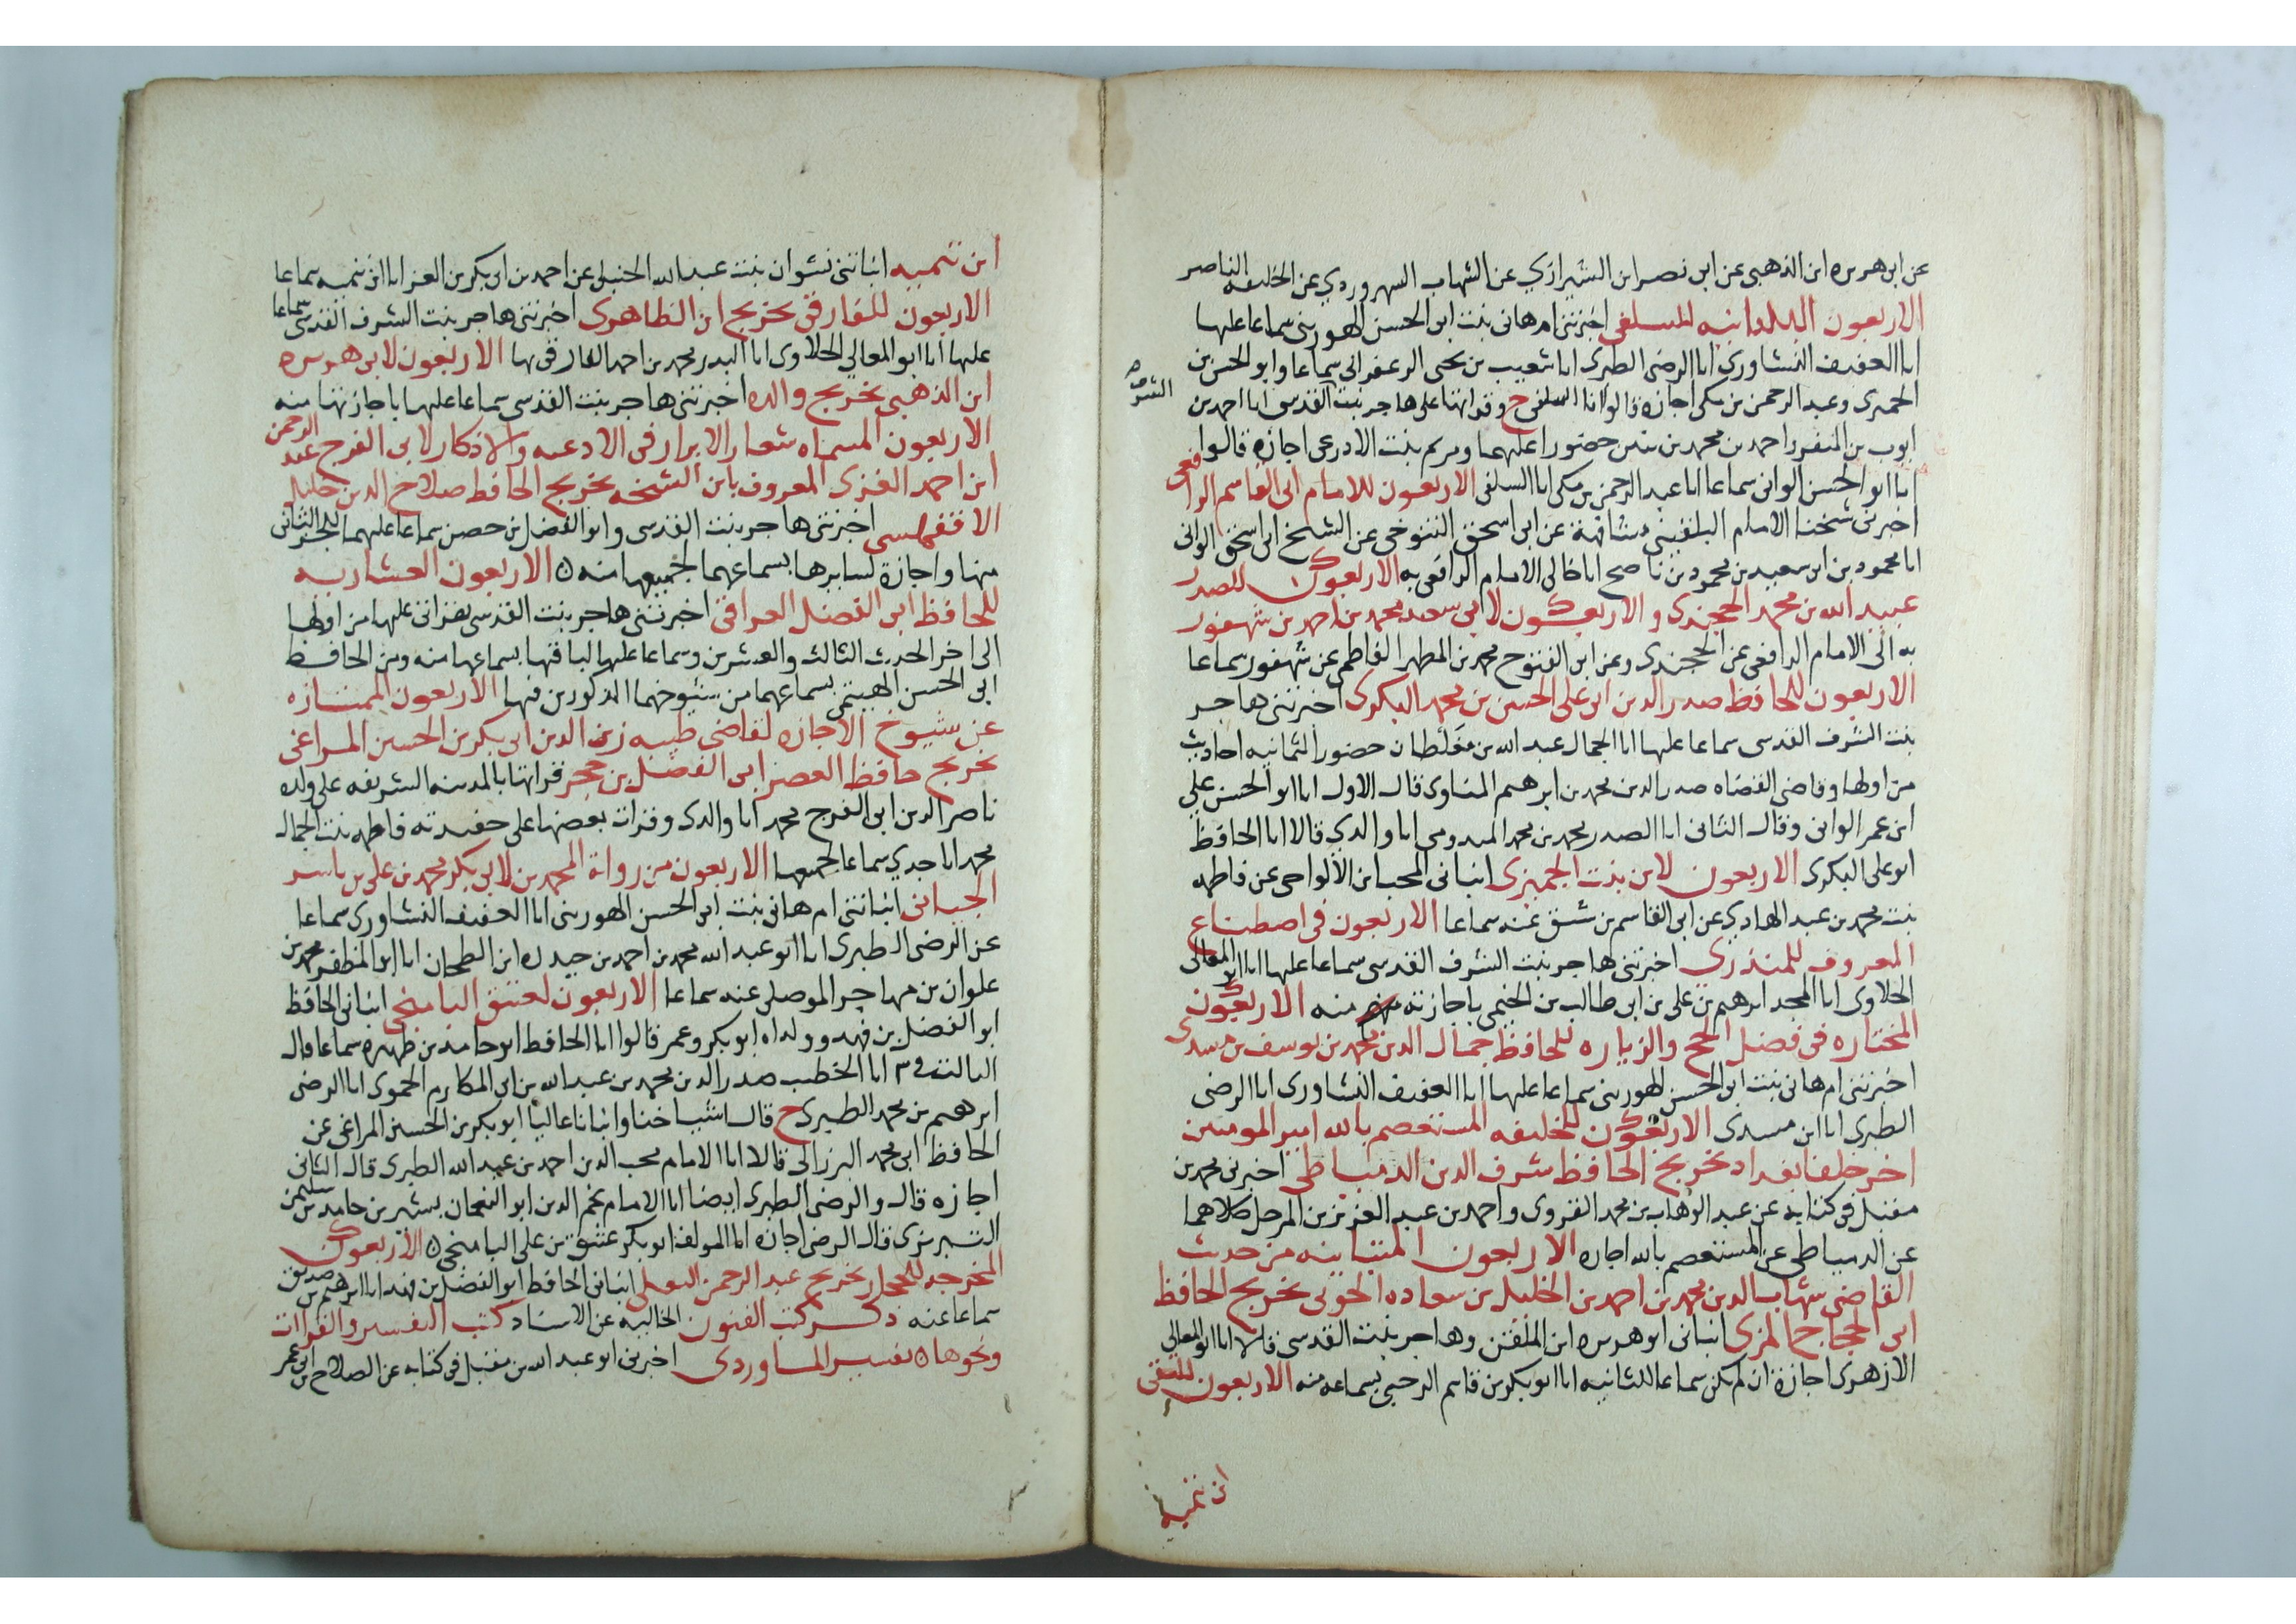 عن ابى هريره ابن الذهبي عن ابى نصر ابن الشيرازي عن الشهاب السهروردي عن الخليفه الناصر
الاربعون البلدانيه للسلفي اخبرتنى ام هانى بنت ابى الحسن الهورينى سماعا عليها
انا العفيف النشاورى انا الرضى الطبرى انا شعيب بن يحيى الزعفرانى سماعا وابو الحسن بن
الحميرى وعبد الرحمن بن مكى اجازة قالوا انا السلفى ح وقراتها على هاجر بنت القدسى انا احمد بن
ايوب بن المنفر واحمد بن محمد بن حضورا عليهما ومريم بنت الاذرعى اجازة قالوا
انا ابو الحسن الوانى سماعا انا عبد الرحمن بن مكى انا السلفى الاربعون للامام ابى القاسم الرافعى
اخبرنى شيخنا الامام البلقينى مشافهة عن ابى اسحق التنوخى عن الشيخ ابى اسحق الوانى
انا محمود بن ابى سعيد بن محمود بن ناصح انا خالى الامام الرافعى به الاربعون للصدر
عبيد الله بن محمد الخجندى والاربعون لابى سعد محمد بن احمد بن شهفور
به الى الامام الرافعى عن الخجندى وعن ابى الفتوح محمد بن المطهر الفاطمى عن شهفور سماعا
الاربعون للحافظ صدر الدين ابى على الحسين بن محمد البكرى اخبرتنى هاجر
بنت الشرف القدسى سماعا عليها انا الجمال عبد الله بن مغلطان حضورا لثمانيه احاديث
من اولها وقاضى القضاه صدر الدين محمد بن ابرهيم المناوى قال الاول انا ابو الحسن على
ابن عمر الوانى وقال الثانى انا الصدر محمد بن محمد الميدومى انا والدي قالا انا الحافظ
ابو على البكرى الاربعون لابن بنت الجميزى انبانى المحب ابن الالواحى عن فاطمه
بنت محمد بن عبد الهادي عن ابى القاسم بن عنه سماعا الاربعون فى اصطناع
المعروف للمنذرى اخبرتنى هاجر بنت الشرف القدسى سماعا عليها انا ابو المعالى
الحلاوى انا المجد ابرهيم بن على بن ابى طالب بن الخيمى باجازته منه الاربعون
المختاره فى فضل الحج والزياره للحافظ جمال الدين محمد بن يوسف بن مسدى
اخبرتنى ام هانى بنت ابى الحسن الهورينى سماعا عليها انا العفيف النشاورى انا الرضى
الطبرى انا ابن مسدى الاربعون للخليفه المستعصم بالله امير المومنين
اخر خلفا بغداد تخريج الحافظ شرف الدين الدمياطى اخبرنى محمد بن
مقبل فى كتابه عن عبد الوهاب بن محمد القروى واحمد بن عبد العزيز بن المرحل كلاهما
عن الدمياطى عن المستعصم بالله اجازه الاربعون المتباينه من حديث
القاضى شهاب الدين محمد بن احمد بن الخليل بن سعاده الخويى تخريج الحافظ
ابى الحجاج المزى انبانى ابو هريره ابن الملقن وهاجر بنت القدسى قالا انا ابو المعالى
الازهرى اجازة ان لم يكن سماعا للثانيه انا ابو بكر بن قاسم الرحبى بسماعه منه الاربعون للتقى
ابن تيميه
ابن تيميه انباتنى نشوان بنت عبد الله الحنبلى عن احمد بن ابى بكر بن العز انا ابن تيميه سماعا
الاربعون للفارقى تخريج ابن الظاهرى اخبرتنى هاجر بنت الشرف القدسى سماعا
عليها انا ابو المعالى الحلاوى انا البدر محمد بن احمد الفارقى بها الاربعون لابى هريره
ابن الذهبى تخريج والده اخبرتنى هاجر بنت القدسى سماعا عليها باجازتها منه
الاربعون المسماه شعار الابرار فى الادعيه والاذكار لابى الفرج عبد الرحمن
ابن احمد الغزى المعروف بابن الشيخه تخريج الحافظ صلاح الدين خليل
الاقفهسى اخبرتنى هاجر بنت القدسى وابو الفضل بن حصن سماعا عليهما للجز الثانى
منها واجازة لسايرها بسماعهما لجميعها منه ه الاربعون العشاريه
للحافظ ابى الفضل العراقى اخبرتنى هاجر بنت القدسى بقراتى عليها من اولها
الى اخر الحديث الثالث والعشرين وسماعا عليها لباقيها بسماعها منه ومن الحافظ
ابى الحسن الهيتمى بسماعهما من شيوخهما المذكورين فيها الاربعون الممتازه
عن شيوخ الاجازه لقاضى طيبه زين الدين ابى بكر بن الحسين المراغى
تخريج حافظ العصر ابى الفضل بن حجر قراتها بالمدينه الشريفه على ولده
ناصر الدين ابى الفرج محمد انا والدى وقرات بعضها على حفيدته فاطمه بنت الجمال
محمد انا جدي سماعا لجميعها الاربعون من رواة المحمدين لابى بكر محمد بن على بن ياسر
الجيانى انباتنى ام هانى بنت ابى الحسن الهورينى انا العفيف النشاورى سماعا
عن الرضى الطبرى انا ابو عبد الله محمد بن احمد بن حيدره ابن الطحان انا ابو المظفر محمد بن
علوان بن مهاجر الموصلى عنه سماعا الاربعون لعتيق البامنجى انبانى الحافظ
ابو الفضل بن فهد وولداه ابو بكر وعمر قالوا انا الحافظ ابو حامد بن ظهيره سماعا قال
الثالث انا الخطيب صدر الدين محمد بن عبد الله بن ابى المكارم الحموى انا الرضى
ابرهيم بن محمد الطبرى ح قال شياخنا وانبانا عاليا ابو بكر بن الحسين المراغى عن
الحافظ ابى محمد البرزالى قالا انا الامام محب الدين احمد بن عبد الله الطبرى قال الثانى
اجازه قال والرضى الطبرى ايضا انا الامام نجم الدين ابو النعمان بشير بن حامد بن سليمن
التبريزى قال الرضى اجازه انا المولف ابو بكر عتيق بن على البامنجى ه الاربعون
المخرجه للحجار تخريج عبد الرحمن البعلى انبانى الحافظ ابو الفضل بن فهد انا ابرهيم بن صديق
سماعا عنه ذكر كتب الفنون الخاليه عن الاسناد كتب التفسير والقراات
ونحوها ه تفسير الماوردى اخبرنى ابو عبد الله بن مقبل فى كتابه عن الصلاح بن ابى عمر